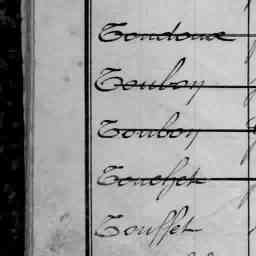 Toudoux
Toubon
Toubon
Touchet
Touffet